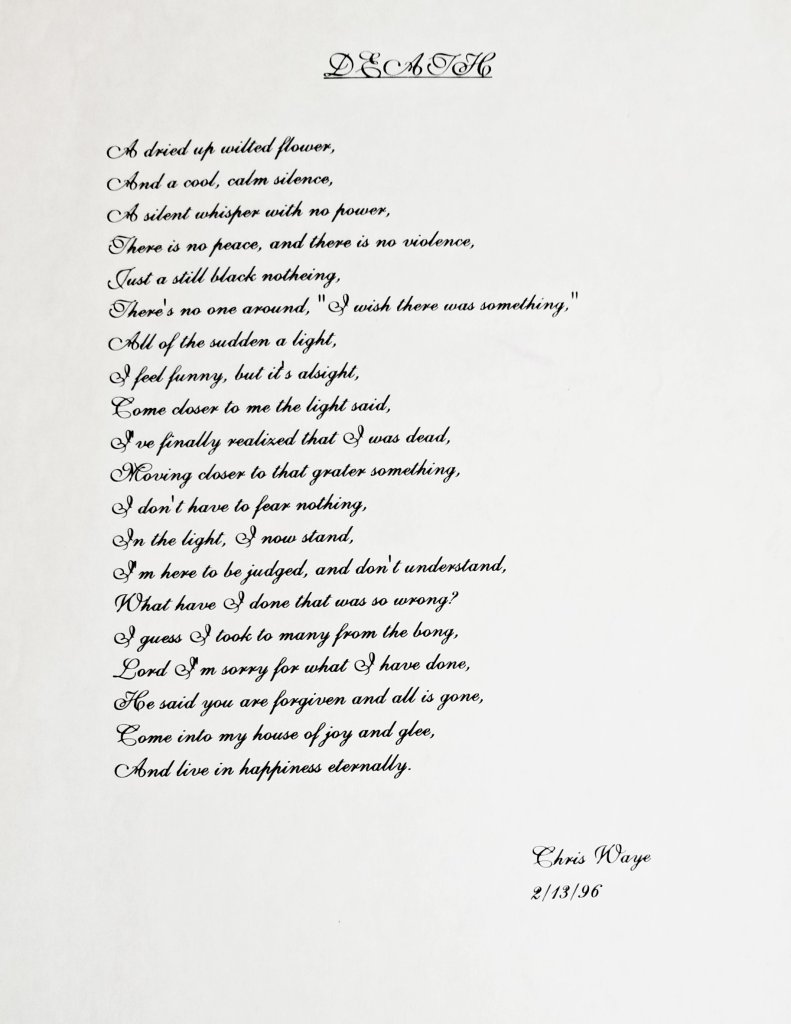 DEATH
A dried up wilted flower,
And a cool, calm silence,
A silent whisper with no power,
There is no peace, and there is no violence,
Just a still black notheing,
There's no one around, "I wish there was something,"
All of the sudden a light,
I feel funny, but it's alsight,
Come closer to me the light said,
I've finally realized that I was dead,
Moving closer to that grater something,
I don't have to fear nothing,
In the light, I now stand,
I'm here to be judged, and don't understand,
What have I done that was so wrong?
I guess I took to many from the bong,
Lord I'm sorry for what I have done,
He said you are forgiven and all is gone,
Come into my house of joy and glee,
And live in happiness eternally.
Chris Waye
2/13/96